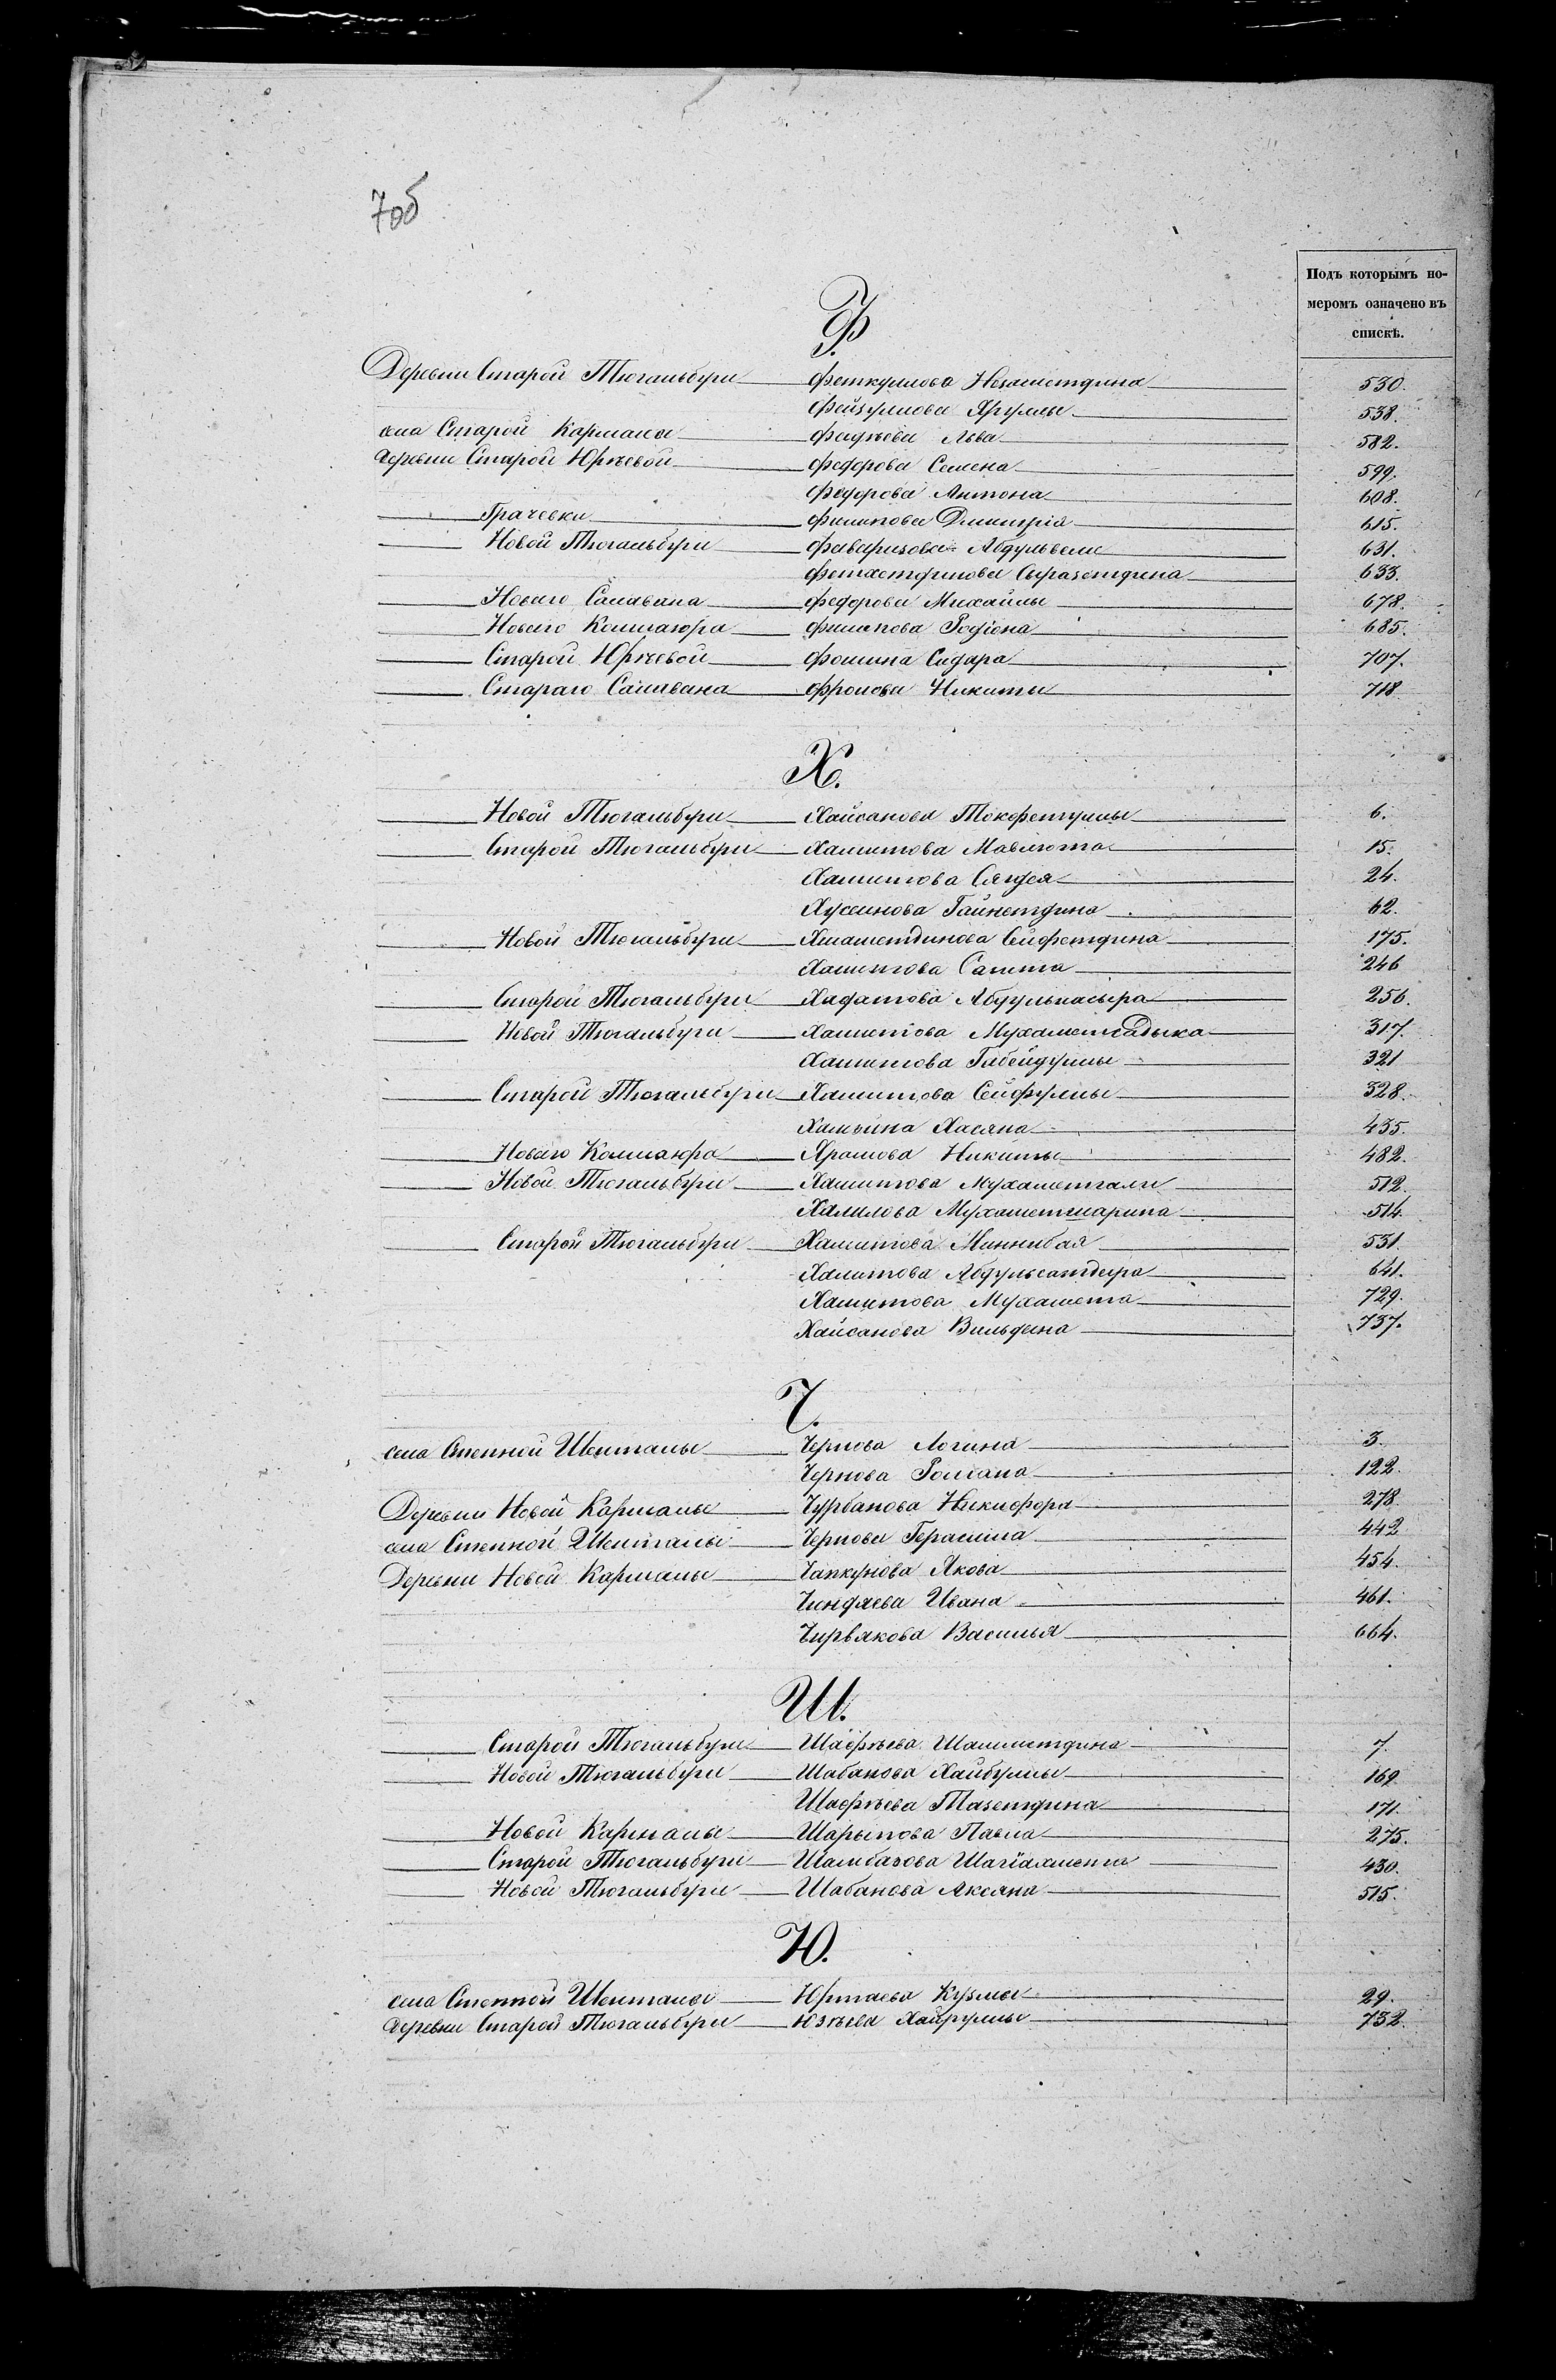 7об
Подъ которымъ но-
меромъ означено въ
спискѣ.
Ф.
Деревни Старой Тюгальбуги Феткулова Незаметдина 530.
Фейзулова Ярулы 538.
села Старой Кармалы Фадѣева Льва 582.
деревни Старой Юркевой Федорова Семена 599.
Федорова Антона 608.
Грачевки Филипова Дмитрія 615.
Новой Тюгальбуги Абдулвели 631.
Фетхетдинова Сыразетдина 633.
Новаго Салавана Федорова Михайлы 678.
Новаго Колмаюра Филипова Родіона 685.
Старой Юркевой Фомина Сидара 707.
Стараго Салавана Фролова Никиты 718
Х.
Новой Тюгальбуги Хайсанова Токфетуллы 6.
Старой Тюгальбуги Хамитова Мавлюта 15.
Хамитова 24.
Хусеинова Гайнетдина 62.
Новой Тюгальбуги Хисаметдинова Сейфетдина 175.
Хамитова Сагита 246
Старой Тюгальбуги Абдульнасыра 256.
Новой Тюгальбуги Хамитова Мухаметсадыка 317.
Хамитова Габейдуллы 321
Старой Тюгальбуги Хамитова Сейфуллы 328.
Хасяна 435.
Новаго Колмаюра Храмова Никиты 482.
Новой Тюгальбуги Хамитова Мухаметгали 512.
Халилова Мухаметшарипа 514.
Старой Тюгальбуги Хамитова Миннибая 531.
Халитова Абдульсаттыра 641.
Хамитова Мухамета 729.
Хайсанова Вильдана 737.
Ч.
села Степной Шенталы Чернова Логина 3.
Чернова Романа 122.
Деревни Новой Кармалы Чурбанова Никифора 278.
села Степной Шенталы Чернова Герасима 442
Деревни Новой Кармалы Чапкунова Якова 454.
Чиндяева Ивана 461.
Чирвякова Василья 664.
Ш.
Старой Тюгальбуги Шафѣева Шамшетдина 7.
Новой Тюгальбуги Шабанова Хайбуллы 169
Шафѣева Тазетдина 171.
Новой Кармалы Шарыпова Павла 275.
Старой Тюгальбуги Шамбазова Шагіахмета 430.
Новой Тюгальбуги Шабанова Аксяна 515.
Ю.
села Степной Шенталы Юртаева Кузмы 29.
деревни Старой Тюгальбуги Юзѣева Хайруллы 732.